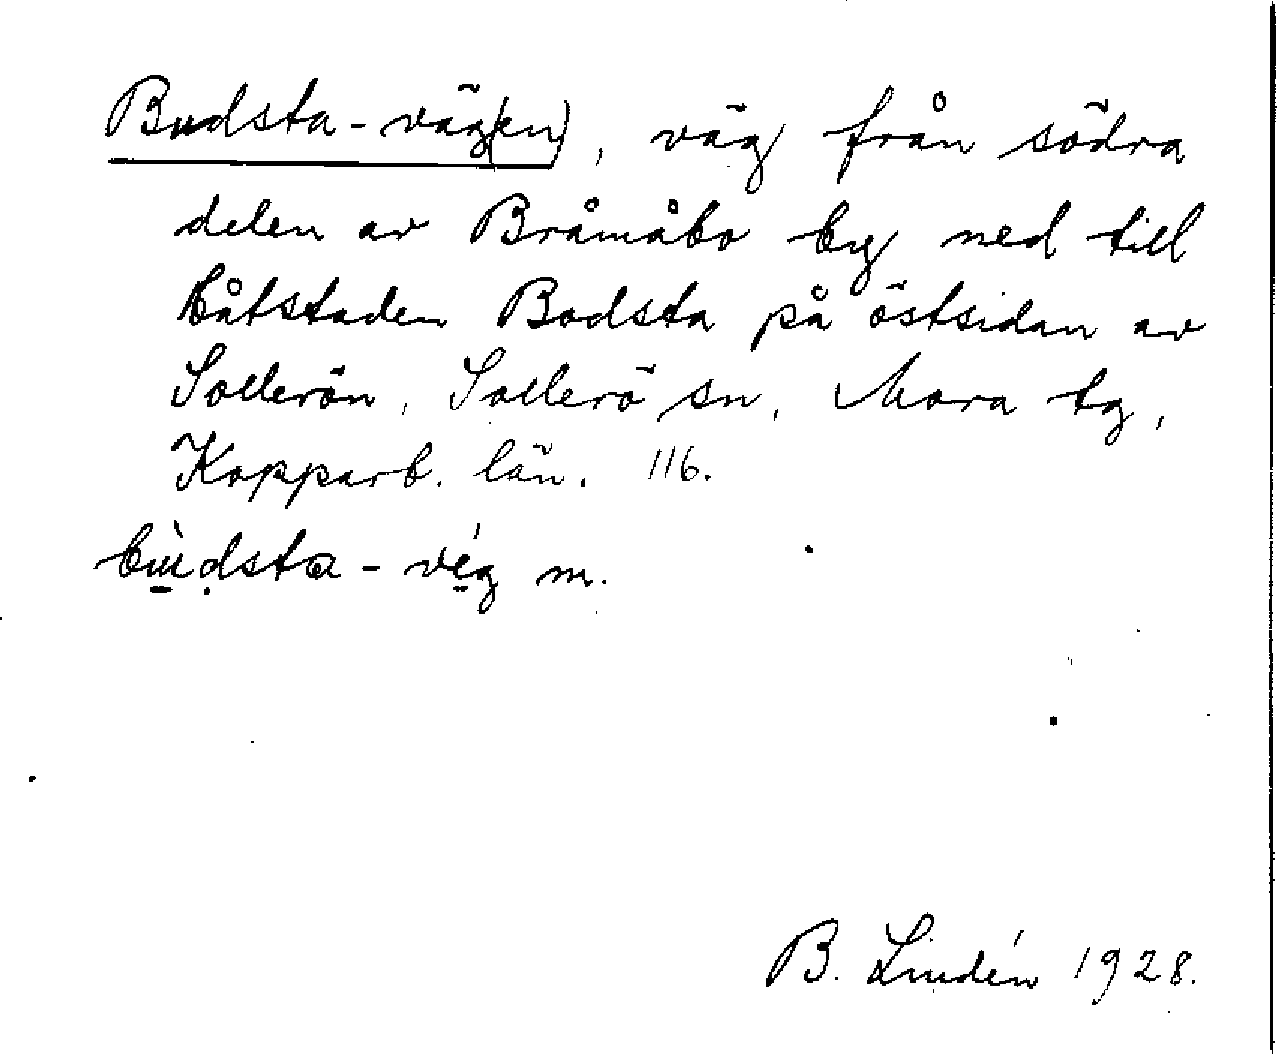 Budsta-väg(en), väg från södra
delen av Bråmåbo by ned till
båtstaden Bodsta på östsidan av
Sollerön, Sollerö sn, Mora tg,
Kopparb. län. 116.
bù̱ḍsta-vé̱g m.
B. Lindén 1928.